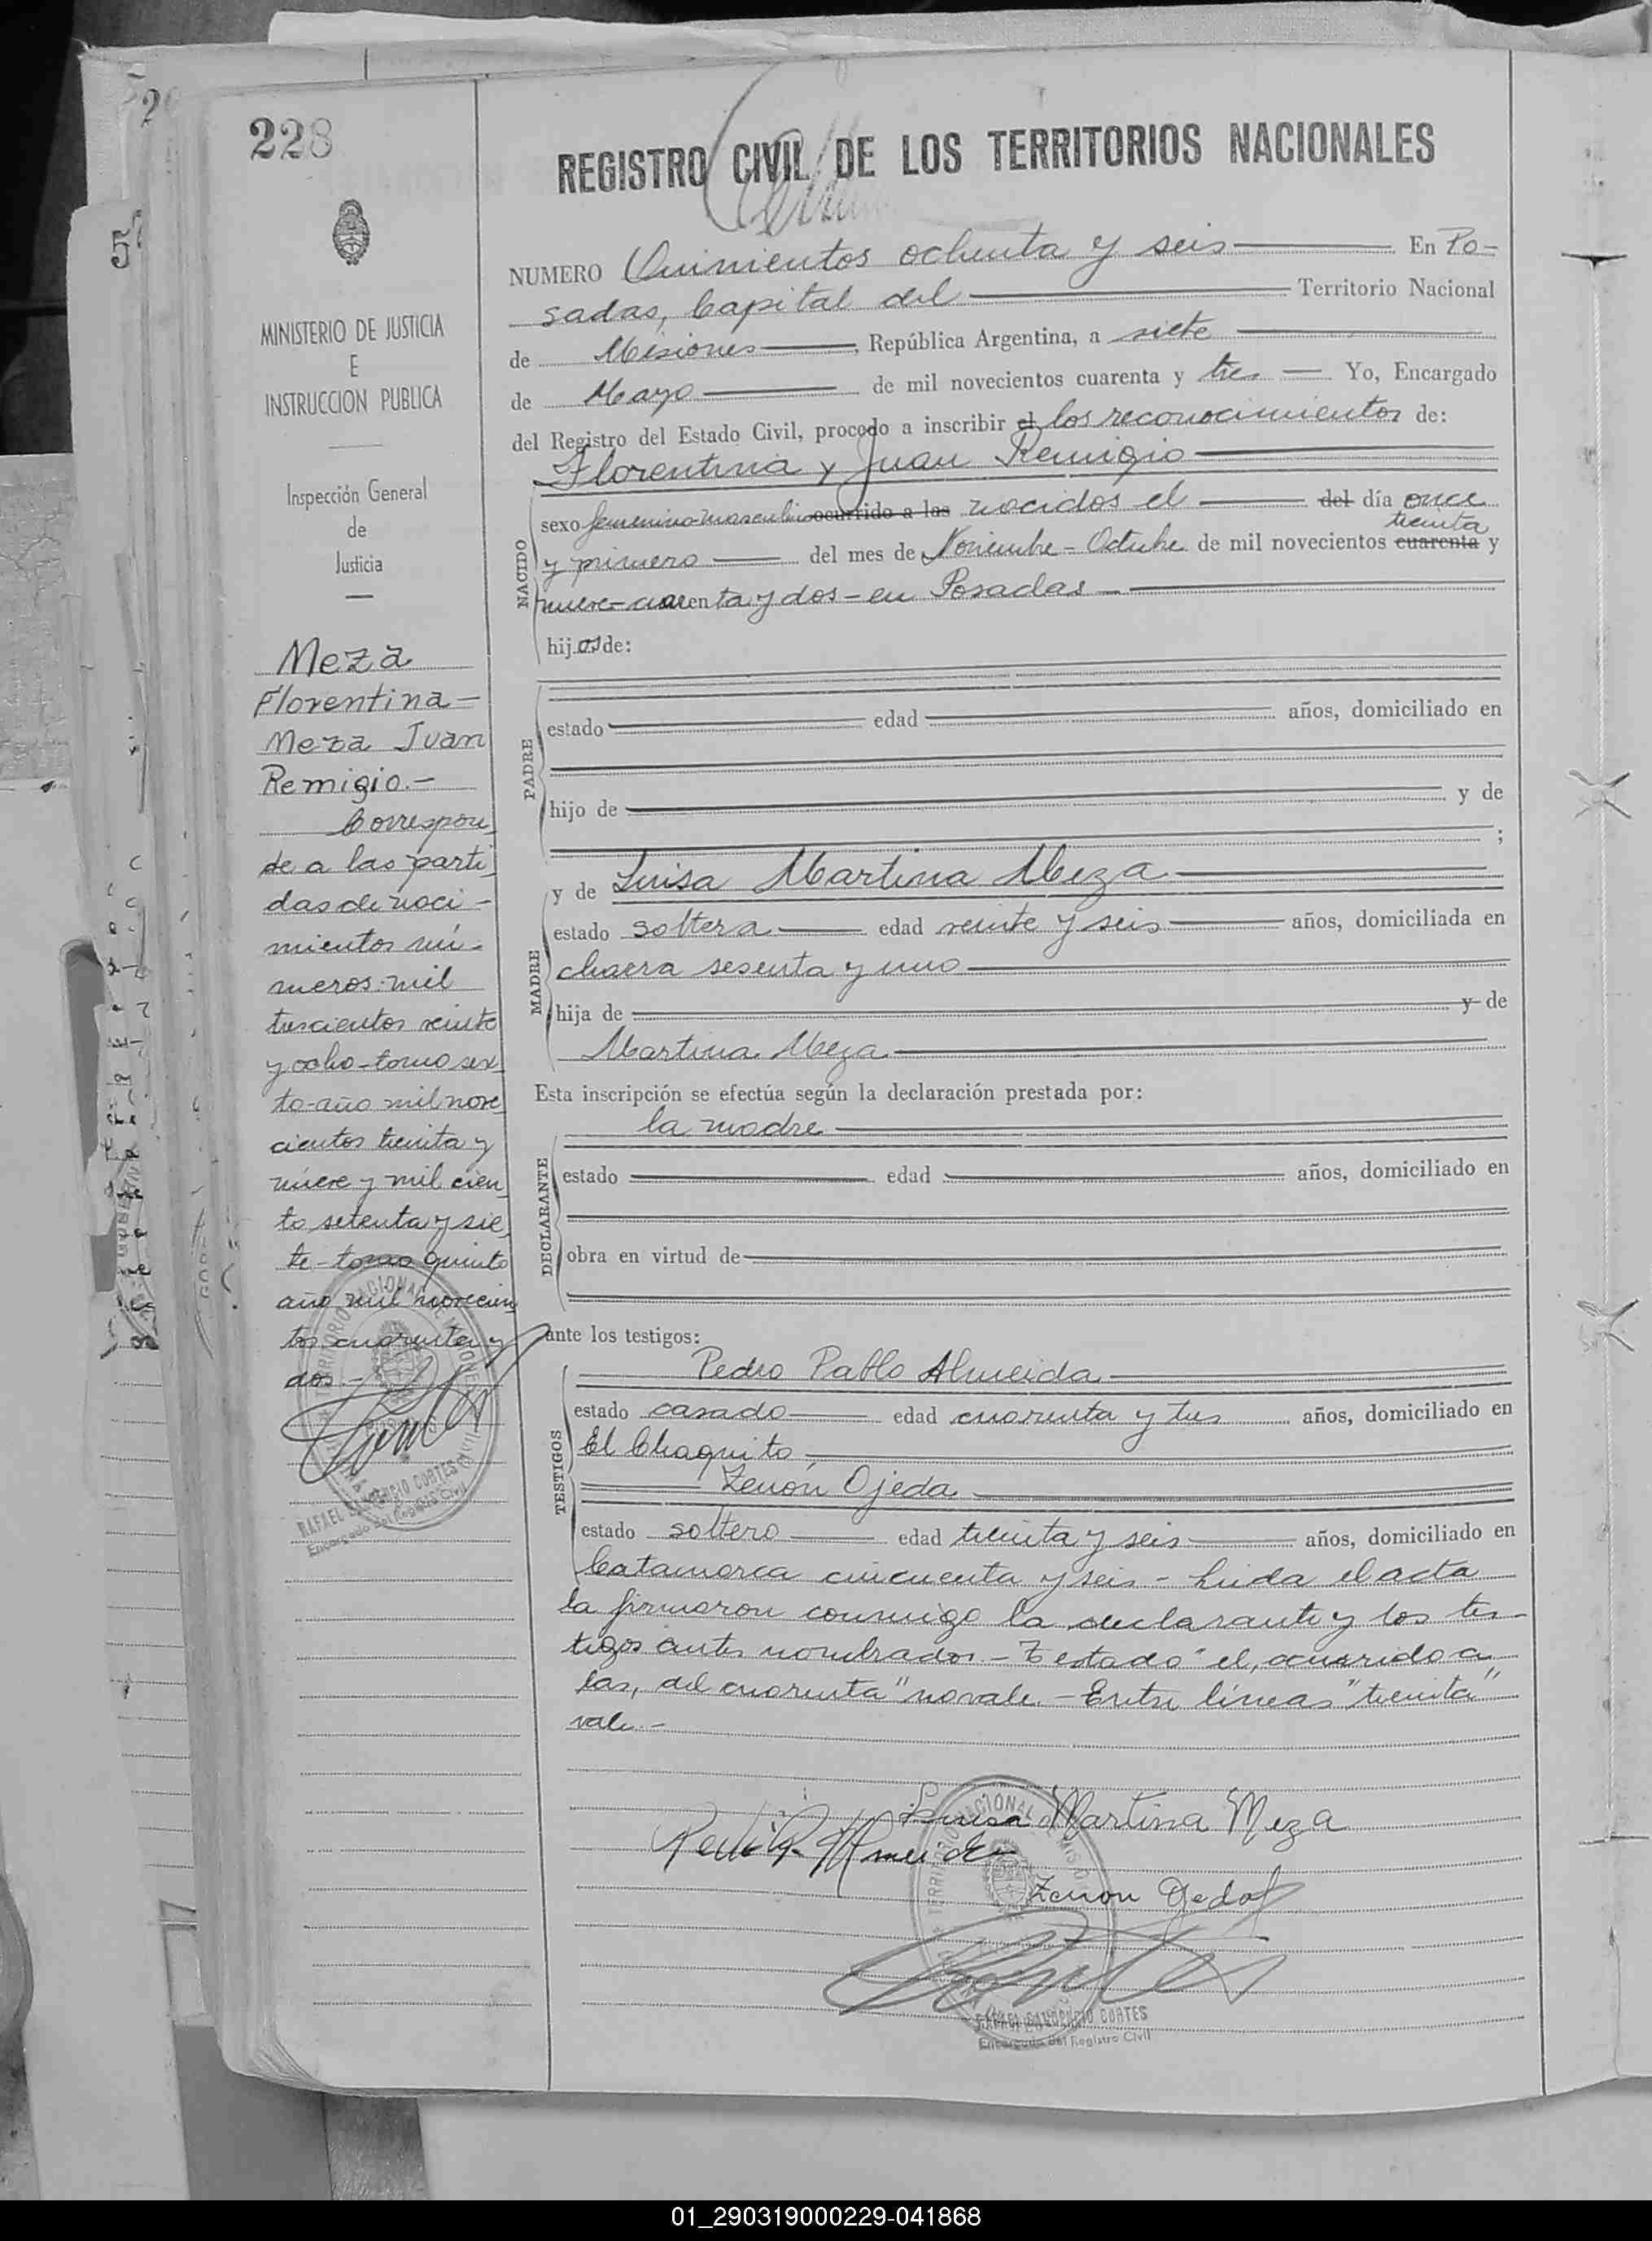 228
REGISTRO CIVIL DE LOS TERRITORIOS NACIONALES
NUMERO Quinientos ochenta y seis En Po-
sadas, Capital del Territorio Nacional
de Misiones, República Argentina, a siete
de Mayo de mil novecientos cuarenta y tres Yo, Encargado
del Registro del Estado Civil, procedo a inscribir el los reconocimientos de:
Florentina y Juan Remigio
NACIDO
sexo femenino-masculino ocurrido a las nacidos el del día once
treinta
y primero del mes de Noviembre - Octubre de mil novecientos cuarenta y
nueve-cuarenta y dos - en Posadas
hijos de:
PADRE
estado edad años, domiciliado en
hijo de y de
;
MADRE
y de Luisa Martina Meza
estado soltera edad veinte y seis años, domiciliada en
chacra sesenta y uno
hija de y de
Martina Meza
Esta inscripción se efectúa según la declaración prestada por:
la madre
DECLARANTE
estado edad años, domiciliado en
obra en virtud de
ante los testigos:
TESTIGOS
Pedro Pablo Almeida
estado casado edad cuarenta y tres años, domiciliado en
El Chaquito
Zenón Ojeda
estado soltero edad treinta y seis años, domiciliado en
Catamarca cincuenta y seis - Leida el acta
la firmaron conmigo la declarante y los tes-
tigos antes nombrados. - Testado "el, ocurrido a
las, del cuarenta" no vale. - Entre líneas "treinta"
vale. -
Luisa Martina Meza
Zenon Ojeda
RAFAEL CORTES
Encargado del Registro Civil
MINISTERIO DE JUSTICIA
E
INSTRUCCION PUBLICA
Inspección General
de
Justicia
Meza
Florentina -
Meza Juan
Remigio. -
Correspon-
de a las parti-
das de naci-
mientos nú-
meros: mil
trescientos veinte
y ocho - tomo sex-
to - año mil nove-
cientos treinta y
nueve y mil cien-
to setenta y sie-
te - tomo quinto
año mil novecien-
tos cuarenta y
dos -
RAFAEL CORTES
Encargado del Registro Civil
01_290319000229-041868